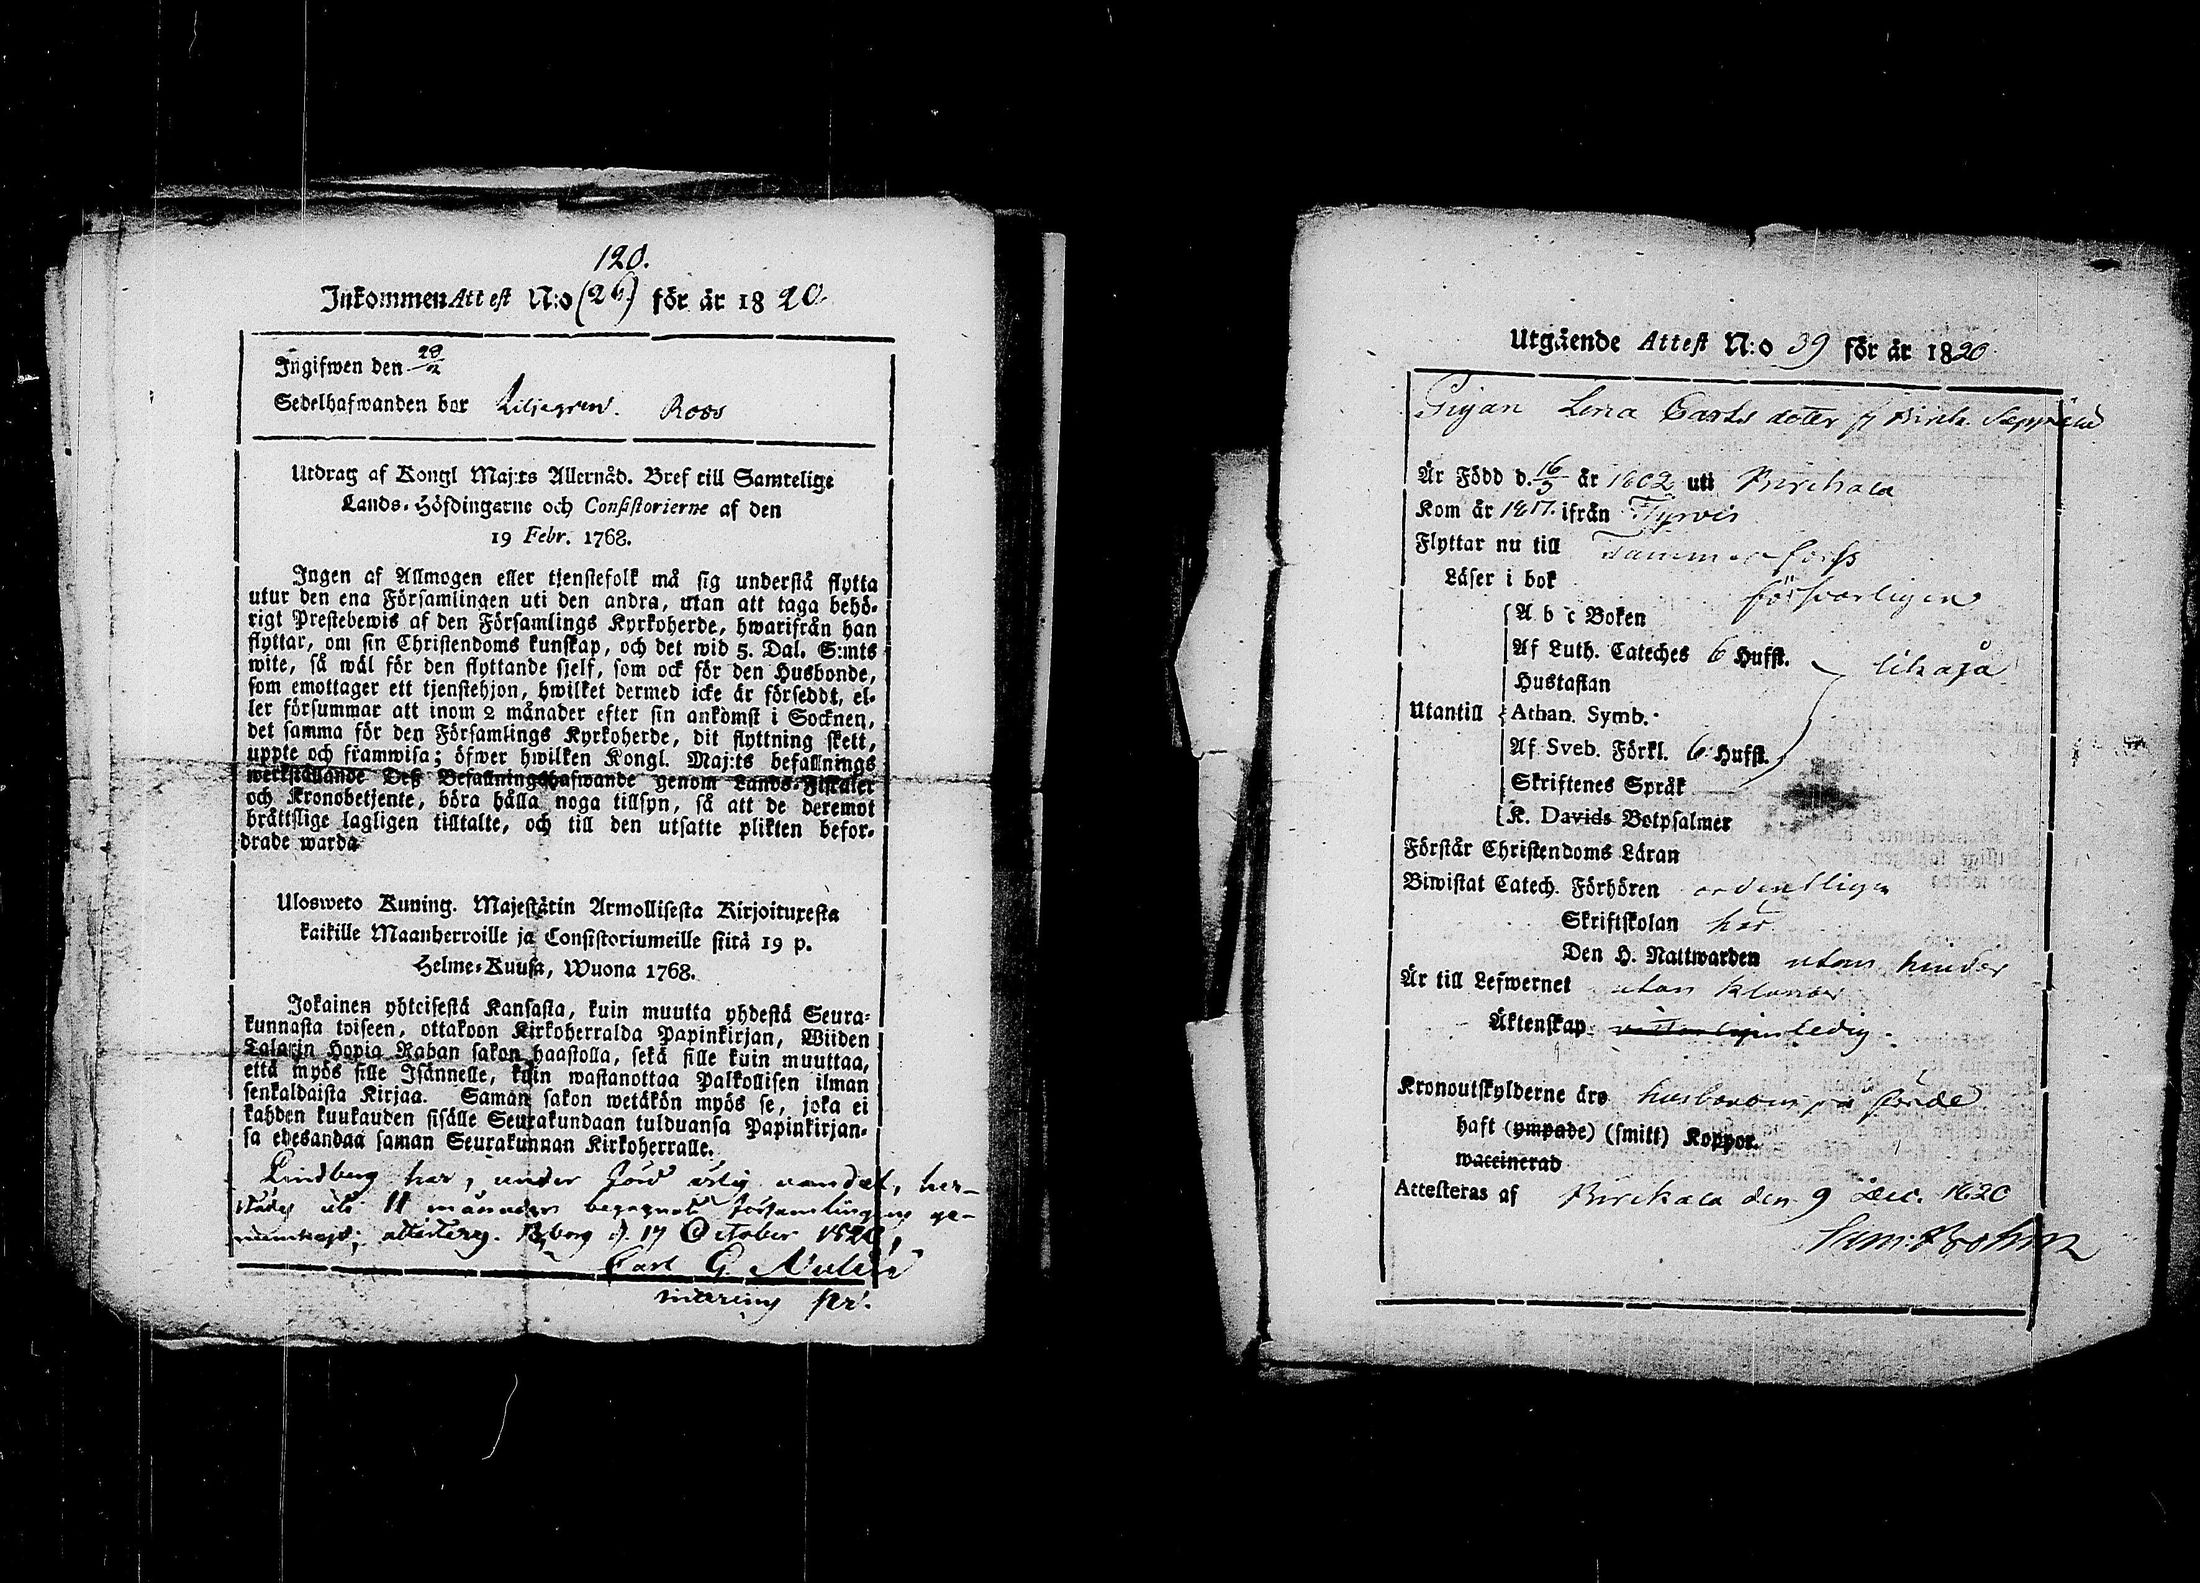 120.
Inkommen Attest N:o (26) för år 1820.
Ingifwen den 28/2
Sedelhafwanden bor Liljegren. Roos
Utdrag af Kongl Maj:ts Allernåd. Bref till Samtelige
Lands-Höfdingarne och Consistorierne af den
19 Febr. 1768.
Ingen af Allmogen eller tjenstefolk må sig understå flytta
utur den ena Församlingen uti den andra, utan att taga behö-
rigt Prestebewis af den Församlings Kyrkoherde, hwarifrån han
flyttar, om sin Christendoms kunskap, och det wid 5. Dal. S:mts
wite, så wäl för den flyttande sjelf, som ock för den Husbonde,
som emottager ett tjenstehjon, hwilket dermed icke är förseddt, el-
ler försummar att inom 2 månader efter sin ankomst i Socknen,
det samma för den Församlings Kyrkoherde, dit flyttning skett,
uppte och framwisa; öfwer hwilken Kongl. Maj:ts befallnings
werkställande Deß Befallningshafwande genom Lands-Fiskaler
och Kronobetjente, böra hålla noga tillsyn, så att de deremot
brättslige lagligen tilltalte, och till den utsatte plikten befor-
drade warda
Ulosweto Kuning. Majestätin Armollisesta Kirjoituxesta
kaikille Maanherroille ja Consistoriumeille siitä 19 p.
Helme-Kuusa, Wuona 1768.
Jokainen yhteisestä Kansasta, kuin muutta yhdestä Seura-
kunnasta toiseen, ottakoon Kirkoherralda Papinkirjan, Wiiden
Talarin Hopia Rahan sakon haastolla, sekä sille kuin muuttaa,
että myös sille Isännelle, kuin wastanottaa Palkollisen ilman
senkaldaista Kirjaa. Saman sakon wetäkön myös se, joka ei
kahden kuukauden sisälle Seurakundaan tulduansa Papinkirjan-
sa edesandaa saman Seurakunnan Kirkoherralle.
Lindberg har, under förd ärlig vandel, här-
städes uti 11 månader begagnat församlingens ge-
menskap; attesterar. Björneborg d. 17 October 1820,
Carl G.
Utgående Attest N:o 39 för år 1820.
Pigan Lena Carls doter
Är Född d. 16/3 år 1802 uti Birckala
Kom år 1817. ifrån Tyrvis
Flyttar nu till Tammerforss
Läser i bok försvarligen
A b c Boken
Af Luth. Cateches 6 Hufst. likaså
Hustaflan
Utantill Athan. Symb.
Af Sveb. Förkl. 6 Hufst.
Skriftenes Språk
K. Davids Botpsalmer
Förstår Christendoms Läran
Biwistat Catech. Förhören ordentligen
Skriftskolan har
Den H. Nattwarden utan hinder
Är till Lefwernet utan klander
Äktenskap ledig.
Kronoutskylderne äro
haft (ympade) (smitt) Koppor.
waccinerad
Attesteras af Birckala den 9 Dec. 1820